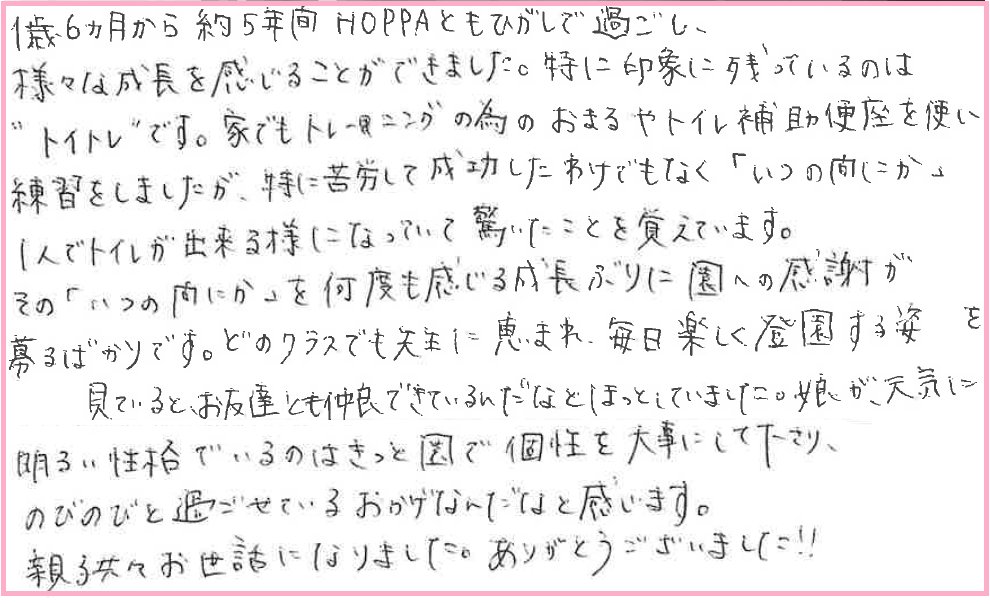 1歳6ヵ月から約5年間HOPPAともひがしで過ごし、
様々な成長を感じることができました。特に印象に残っているのは
"トイトレ"です。家でもトレーニングの為のおまるやトイレ補助便座を使い
練習をしましたが、特に苦労して成功したわけでもなく「いつの間にか」
1人でトイレが出来る様になっていて驚いたことを覚えています。
その「いつの間にか」を何度も感じる成長ぶりに園への感謝が
募るばかりです。どのクラスでも先生に恵まれ、毎日楽しく登園する姿を
見ていると、お友達とも仲良できているんだなとほっとしていました。娘が、天気に
明るい性格でいるのはきっと園で個性を大事にして下さり、
のびのびと過ごせているおかげなんだなと感じます。
親子共々お世話になりました。ありがとうございました!!